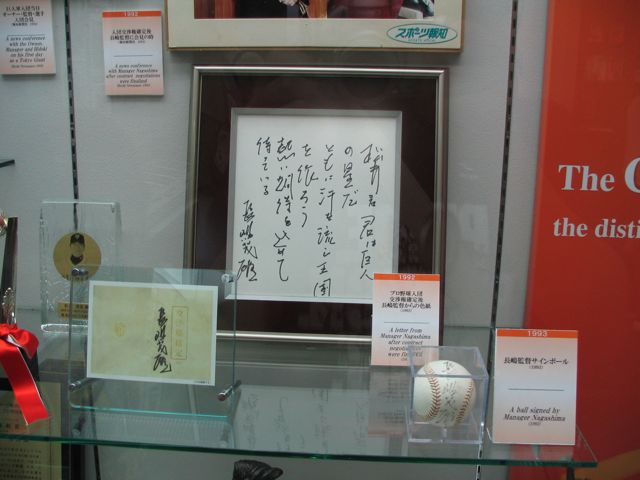 巨人軍入団当日
オーナー・監督・選手
入団会見
A news conference
with the Owner,
Manager and Hideki
on his first day
as a Tokyo Giant
1992
入団交渉権確定後
長嶋監督に会見の時
A news conference
with Manager Nagashima
after contract
negotiations
were finalized
スポーツ報知
松井君 君は巨人
の星だ
ともに汗を流し王国
を作ろう
熱い期待を込めて
待っている
長嶋茂雄
交渉権確定
長嶋茂雄
1992
プロ野球入団
交渉権確定後
長嶋監督からの色紙
(1992)
A letter from
Manager Nagashima
after contract
negotiations
1993
長嶋監督サインボール
(1993)
A ball signed by
Manager Nagashima
(1993)
The
the disti